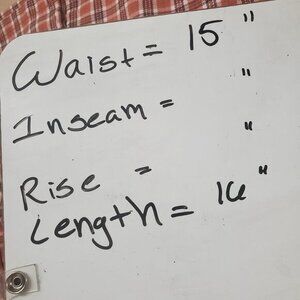 Waist = 15 "
Inseam = "
Rise = "
Length = "